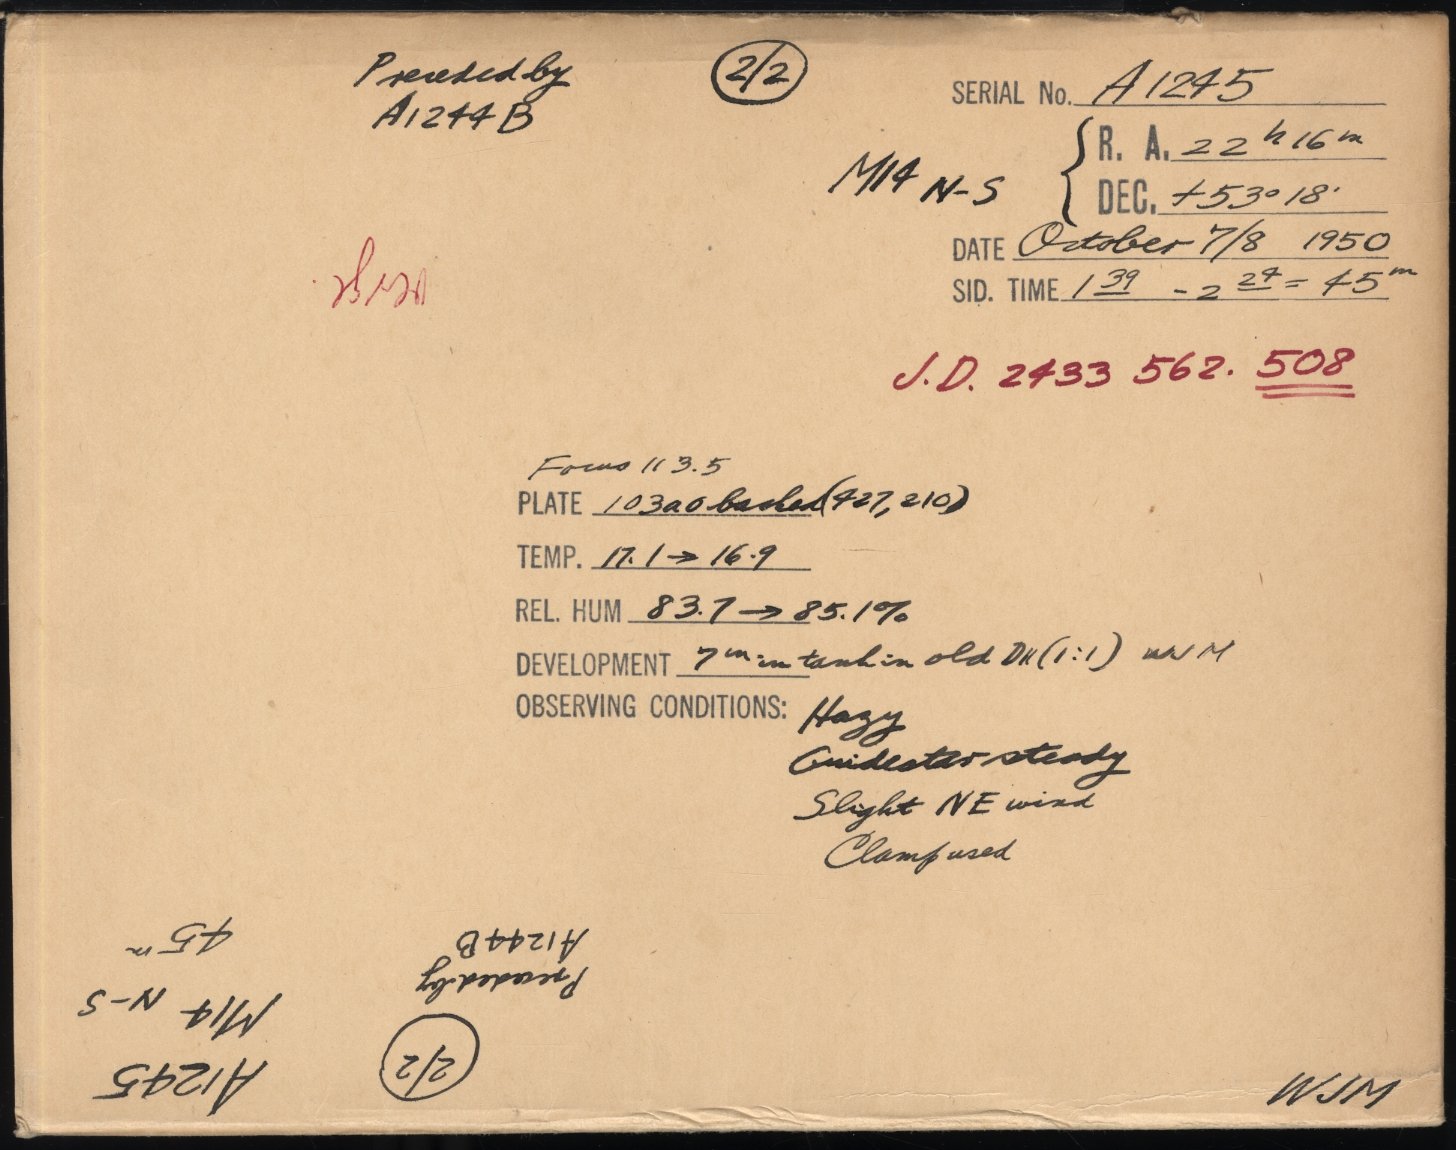 Preceded by
A1244B
2/2
SERIAL No. A1245
M14 N-S
R. A. 22h 16m
DEC. +53° 18'
DATE October 7/8 1950
SID. TIME 1 39 - 2 24 = 45m
J.D. 2433 562. 508
Focus 113.5
PLATE 103aO backed (427, 210)
TEMP. 17.1 → 16.9
REL. HUM 83.7 → 85.1%
DEVELOPMENT 7m in tank in old D11 (1:1) WJM
OBSERVING CONDITIONS: Hazy
Guidestar steady
Slight NE wind
Clamp used
WJM
A1245
M14 N-S
45m
2/2
Preceded by
A1244B